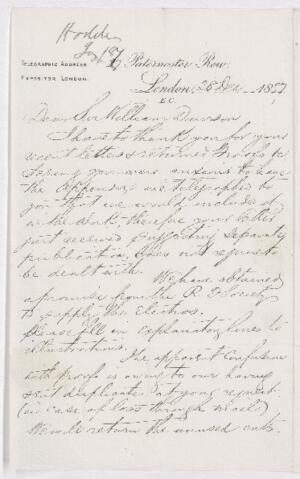 Hodder
27 Paternoster Row.
TELEGRAPHIC ADDRESS
LONDON.
London, 28 Dec 1887
E.C.
Dear Sir William Dawson
I have to thank you for your
recent letters & returned proofs &
seeing you were anxious to have
the Appendix we telegraphed to
you that we would include it
in the book, therefore your letter
just received suggesting separate
publication, does not require to
be dealt with.
We have obtained
a promise from the R T Society
to supply the electros.
Please fill in explanatory lines to
illustrations.
The apparent confusion
with proofs is owing to our having
sent duplicates at your request
(in case of loss through mail)
We will return the unused cuts.